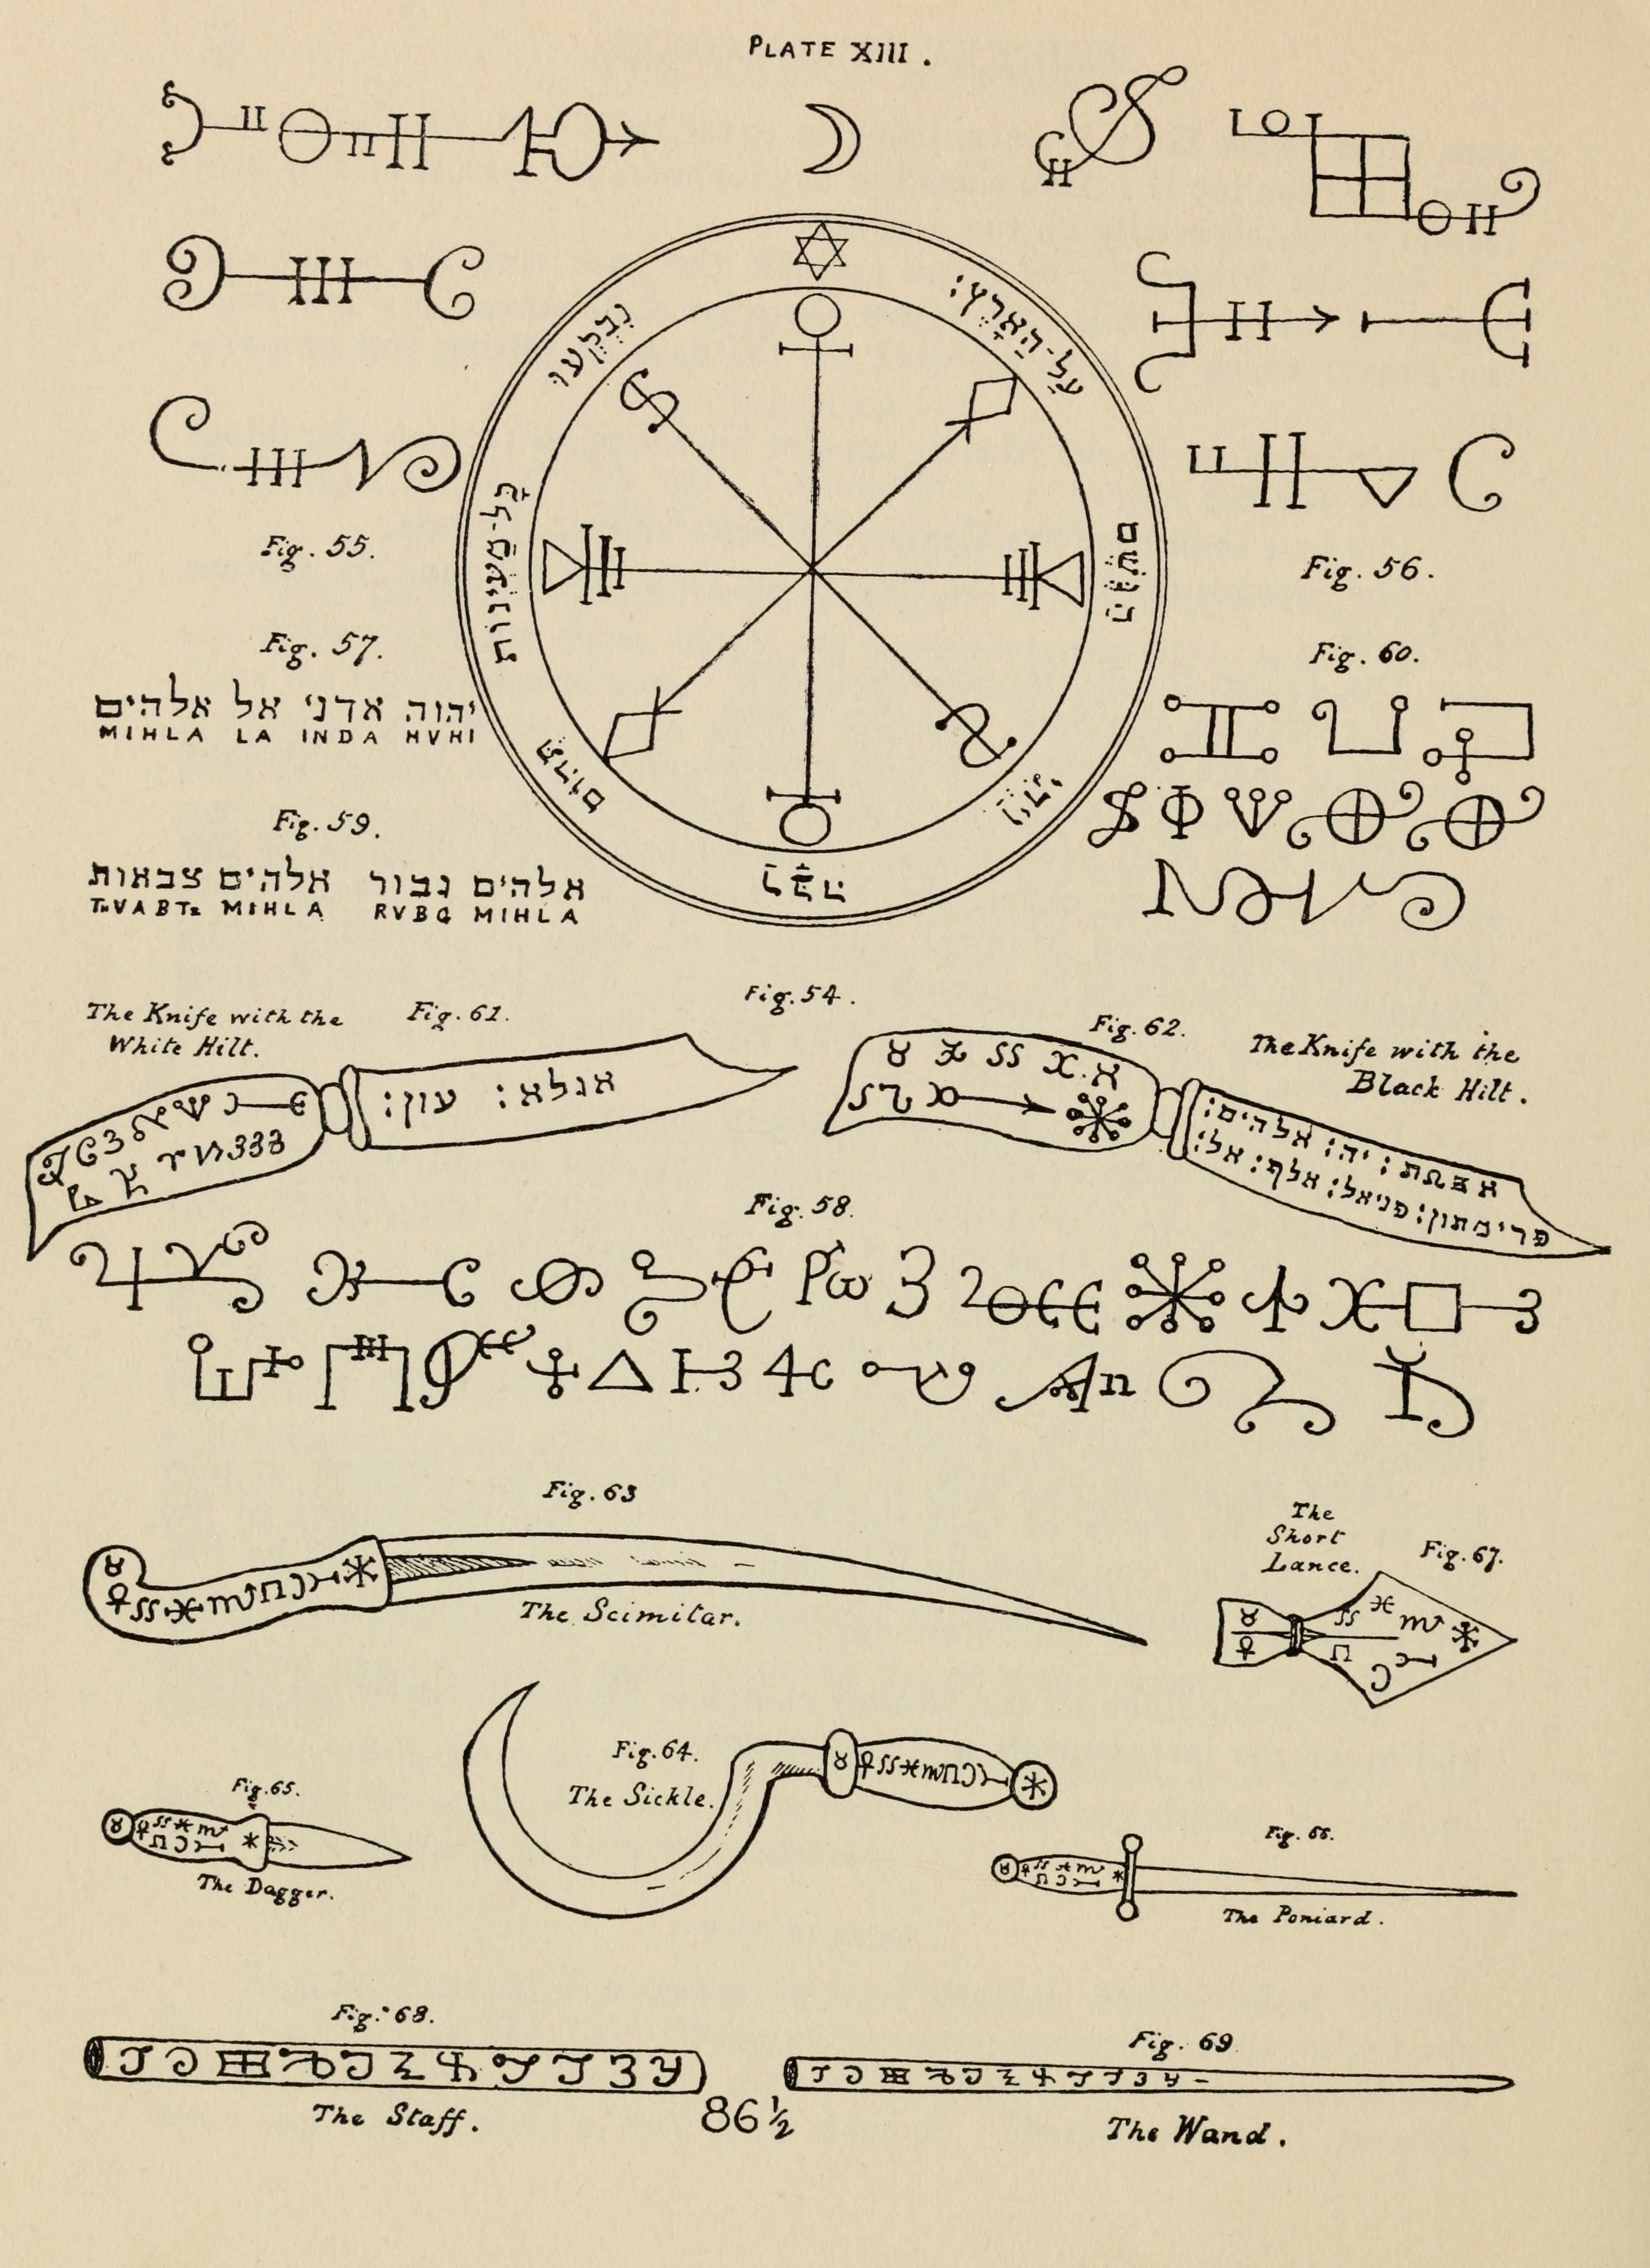 PLATE XIII.
נבקעו
על-הארץ:
כל-מעינות
הגשם
תהום
ויהי
Fig. 55.
Fig. 56.
Fig. 57.
יהוה אדני אל אלהים
MIHLA LA INDA HVHI
Fig. 60.
Fig. 59.
אלהים גבור אלהים צבאות
ThVABTz MIHLA RVBG MIHLA
Fig. 54.
The Knife with the
White Hilt.
Fig. 61.
אגלא: עון:
Fig. 62.
The Knife with the
Black Hilt.
יה: אלהים:
פרימתון: פניאל: אלף: אל:
Fig. 58.
Fig. 63
The Scimitar.
The
Short
Lance.
Fig. 67.
Fig. 64.
The Sickle.
Fig. 65.
The Dagger.
Fig. 66.
The Poniard.
Fig. 68.
The Staff.
86½
Fig. 69
The Wand.